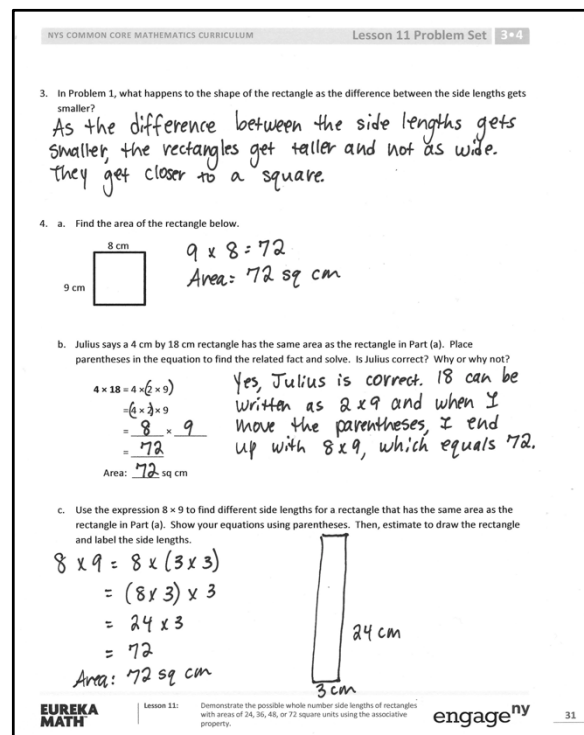 NYS COMMON CORE MATHEMATICS CURRICULUM
Lesson 11 Problem Set 3•4
3. In Problem 1, what happens to the shape of the rectangle as the difference between the side lengths gets
smaller?
As the difference between the side lengths gets
smaller, the rectangles get taller and not as wide.
They get closer to a square.
4. a. Find the area of the rectangle below.
8 cm
9 cm
9 x 8 = 72
Area: 72 sq cm
b. Julius says a 4 cm by 18 cm rectangle has the same area as the rectangle in Part (a). Place
parentheses in the equation to find the related fact and solve. Is Julius correct? Why or why not?
4 × 18 = 4 ×(2 × 9)
=(4 × 2)× 9
= 8 × 9
= 72
Area: 72 sq cm
Yes, Julius is correct. 18 can be
written as 2 x 9 and when I
move the parentheses, I end
up with 8 x 9, which equals 72.
c. Use the expression 8 × 9 to find different side lengths for a rectangle that has the same area as the
rectangle in Part (a). Show your equations using parentheses. Then, estimate to draw the rectangle
and label the side lengths.
8 x 9 = 8 x (3 x 3)
= (8 x 3) x 3
= 24 x 3
= 72
Area: 72 sq cm
24 cm
3 cm
EUREKA
MATH
Lesson 11:
Demonstrate the possible whole number side lengths of rectangles
with areas of 24, 36, 48, or 72 square units using the associative
property.
engageny
31